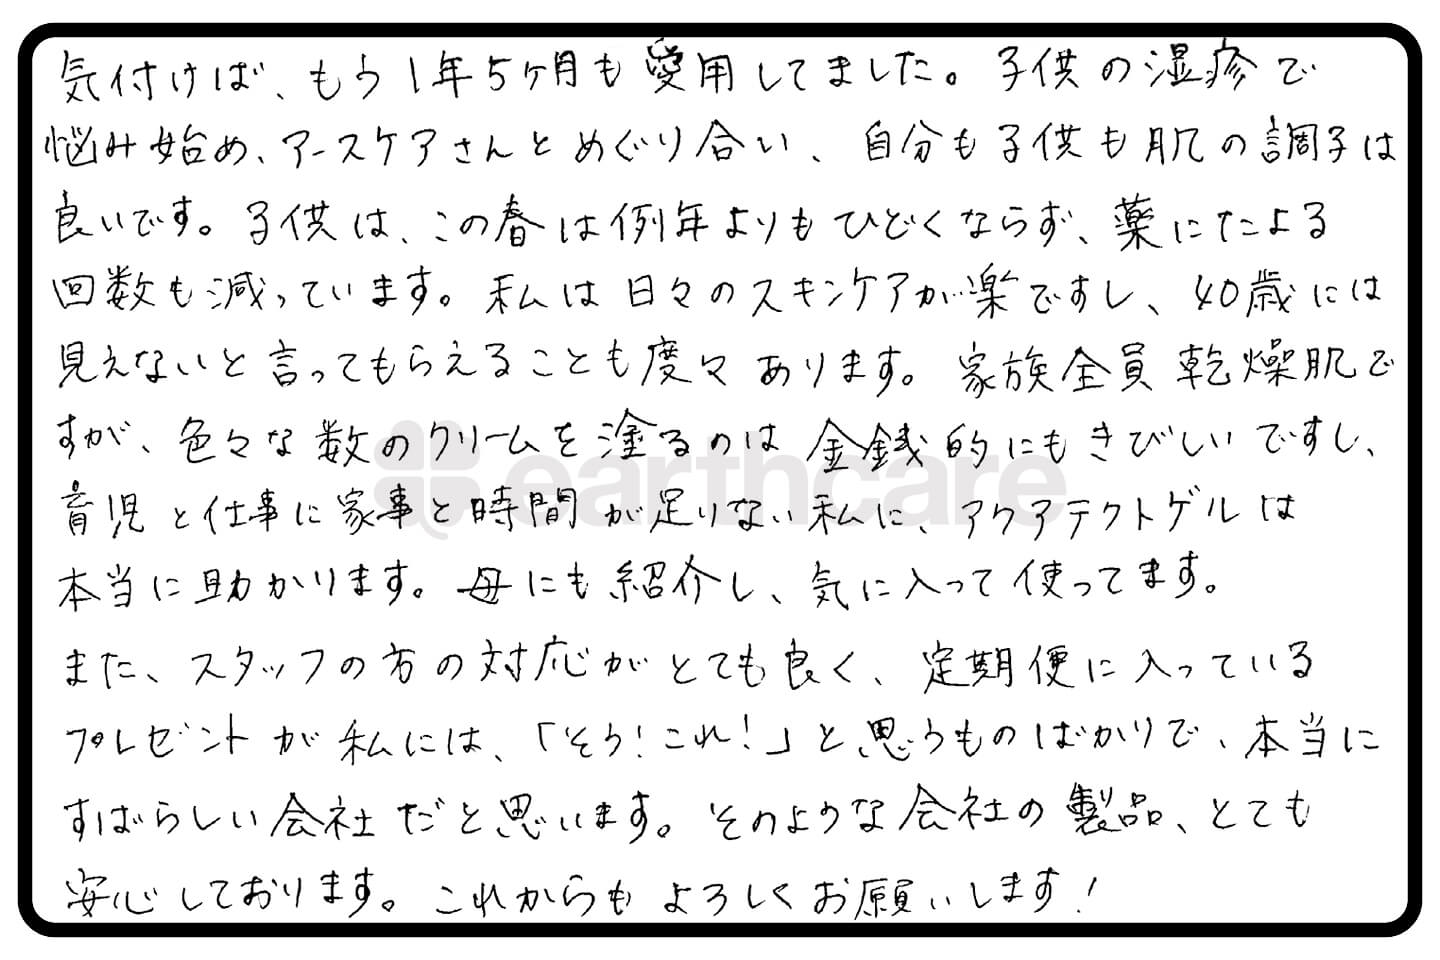 気付けば、もう1年5ヶ月も愛用してました。子供の湿疹で
悩み始め、アースケアさんとめぐり合い、自分も子供も肌の調子は
良いです。子供は、この春は例年よりもひどくならず、薬にたよる
回数も減っています。私は日々のスキンケアが楽ですし、40歳には
見えないと言ってもらえることも度々あります。家族全員乾燥肌で
すが、色々な数のクリームを塗るのは金銭的にもきびしいですし、
育児と仕事に家事と時間が足りない私に、アクアテクトゲルは
本当に助かります。母にも紹介し、気に入って使ってます。
また、スタッフの方の対応がとても良く、定期便に入っている
プレゼントが私には、「そう!これ!」と思うものばかりで、本当に
すばらしい会社だと思います。そのような会社の製品、とても
安心しております。これからもよろしくお願いします!
earthcare